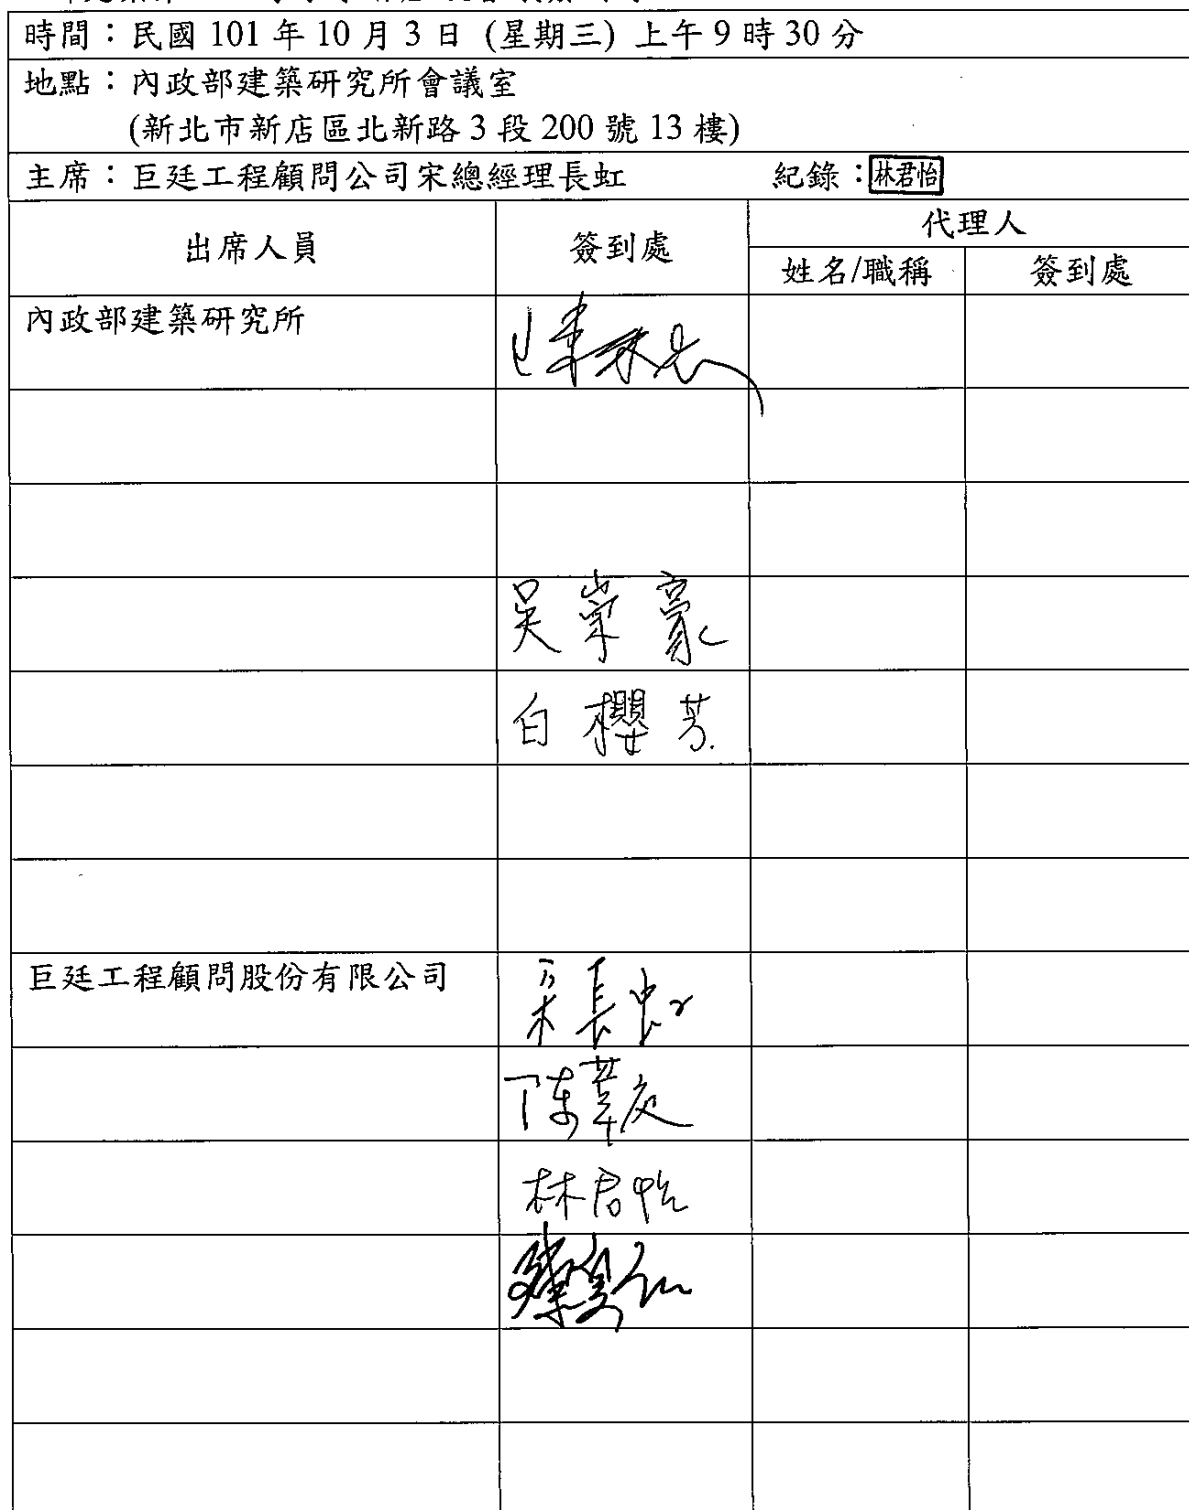 時間：民國 101 年 10 月 3 日 (星期三) 上午 9 時 30 分
地點：內政部建築研究所會議室
(新北市新店區北新路 3 段 200 號 13 樓)
主席：巨廷工程顧問公司宋總經理長虹 紀錄：林君怡
出席人員 簽到處 代理人
姓名/職稱 簽到處
內政部建築研究所
吳崇豪
白櫻芳
巨廷工程顧問股份有限公司 宋長虹
陳葦庭
林君怡